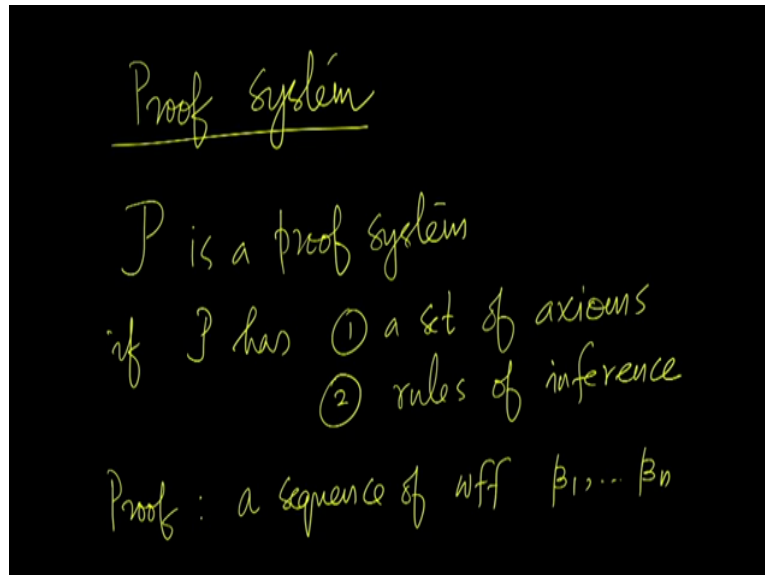 Proof system
P is a proof system
if P has ① a set of axioms
② rules of inference
Proof : a sequence of wff β₁,... βₙ